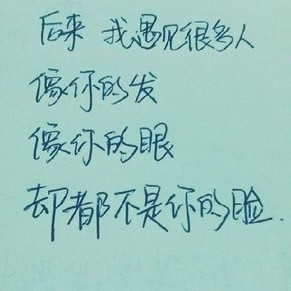 后来 我遇见很多人
像你的发
像你的眼
却都不是你的脸.